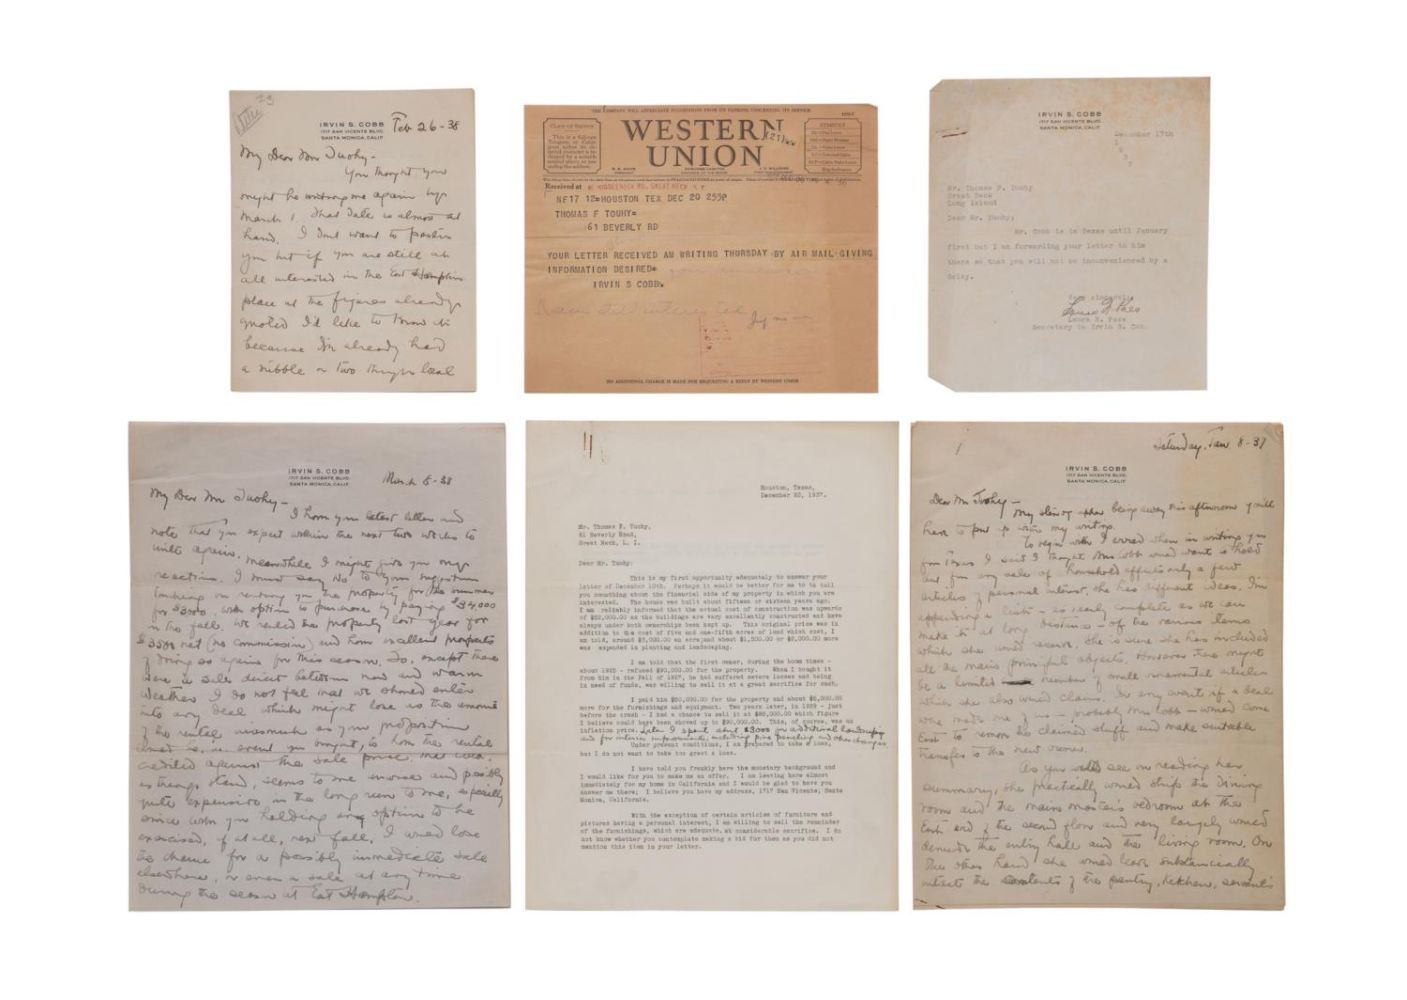 IRVIN S. COBB
1717 SAN VICENTE BLVD.
SANTA MONICA, CALIF.
Feb 26-38
My Dear Mr Tuohy-
You thought you
might be writing me again by
March 1. That date is almost at
hand. I don't want to
you but if you are still at
all interested in the East Hampton
place at the figures already
quoted I'd like to know it
because I'm already had
a nibble or two through local
THE COMPANY WILL APPRECIATE SUGGESTIONS FROM ITS PATRONS CONCERNING ITS SERVICE
CLASS OF SERVICE
WESTERN
UNION
SYMBOLS
Received at
NF17 12=HOUSTON TEX DEC 20 255P
THOMAS F TOUHY=
61 BEVERLY RD
YOUR LETTER RECEIVED AM WRITING THURSDAY BY AIR MAIL GIVING
INFORMATION DESIRED=
IRVIN S COBB.
NO ADDITIONAL CHARGE IS MADE FOR REQUESTING A REPLY BY WESTERN UNION
IRVIN S. COBB
1717 SAN VICENTE BLVD.
SANTA MONICA, CALIF
December 17th
1
9
3
7
Mr. Thomas F. Tuohy
Great Neck
Long Island
Dear Mr. Tuohy:
Mr. Cobb is in Texas until January
first but I am forwarding your letter to him
there so that you will not be inconvenienced by a
delay.
Very sincerely,
Secretary to Irvin S. Cobb.
IRVIN S. COBB
1717 SAN VICENTE BLVD.
SANTA MONICA, CALIF
March 5-38
My Dear Mr Tuohy-
I have your latest letter and
note that you expect within the next two weeks to
write again. Meanwhile I might give you my
reactions. I must say No to your suggestion
touching on renting you the property for the summer
for $3000 with option to purchase by paying $34,000
in the fall. We rented the property last year for
$3500 net (no commission) and have excellent prospects
of doing so again for this season. So, except there
were a sale direct between now and warm
weather I do not feel that we should enter
into any deal which might lose us the amount
of the rental inasmuch as your proposition
is, in event you bought, to have the rental
credited against the sale price. This idea,
as things stand, seems to me unwise and possibly
quite expensive in the long run to me, especially
since with you holding any option to be
exercised, if at all, next fall, I would lose
the chance for a possibly immediate sale
elsewhere, or even a sale at any time
during the season at East Hampton.
Houston, Texas,
December 22, 1937.
Mr. Thomas F. Tuohy,
61 Beverly Road,
Great Neck, L. I.
Dear Mr. Tuohy:
This is my first opportunity adequately to answer your
letter of December 10th. Perhaps it would be better for me to to tell
you something about the financial side of my property in which you are
interested. The house was built about fifteen or sixteen years ago.
I am reliably informed that the actual cost of construction was upwards
of $52,000.00 as the buildings are very excellently constructed and have
always under both ownerships been kept up. This original price was in
addition to the cost of five and one-fifth acres of land which cost, I
am told, around $7,000.00 an acre and about $1,500.00 or $2,000.00 more
was expended in planting and landscaping.
I am told that the first owner, during the boom times -
about 1925 - refused $90,000.00 for the property. When I bought it
from him in the Fall of 1927, he had suffered severe losses and being
in need of funds, was willing to sell it at a great sacrifice for cash.
I paid him $50,000.00 for the property and about $5,000.00
more for the furnishings and equipment. Two years later, in 1929 - just
before the crash - I had a chance to sell it at $85,000.00 which figure
I believe could have been shoved up to $90,000.00. This, of course, was an
inflation price. Later I spent about $3000 in additional landscaping
and for interior improvements, including pine paneling and other changes.
Under present conditions, I am prepared to take a loss,
but I do not want to take too great a loss.
I have told you frankly here the monetary background and
I would like for you to make me an offer. I am leaving here almost
immediately for my home in California and I would be glad to have you
answer me there. I believe you have my address, 1717 San Vicente, Santa
Monica, California.
With the exception of certain articles of furniture and
pictures having a personal interest, I am willing to sell the remainder
of the furnishings, which are adequate, at considerable sacrifice. I do
not know whether you contemplate making a bid for them as you did not
mention this item in your letter.
Saturday, Jan 8-37
IRVIN S. COBB
1717 SAN VICENTE BLVD.
SANTA MONICA, CALIF
Dear Mr Tuohy-
My being away this afternoon you'll
have to put up with my writing.
To begin with I erred when in writing you
from Texas I said I thought Mrs Cobb would want to hold
out from any sale of household effects only a few
articles of personal interest. She has different ideas. I'm
appending a list - as nearly complete as we can
make it at long distance - of the various items
which she would reserve. She is sure she has included
all the main principal objects. However there might
be a limited number of small ornamental articles
which she also would claim. In any event if a deal
were made one of us - probably Mrs Cobb - would come
East to remove the claimed stuff and make suitable
transfer to the new owner.
As you will see in reading her
summary, she practically would strip the dining
room and the main master's bedroom at the
East end of the second floor and very largely would
denude the entry hall and the living room. On
the other hand she would leave substantially
intact the contents of the pantry, kitchen, servants